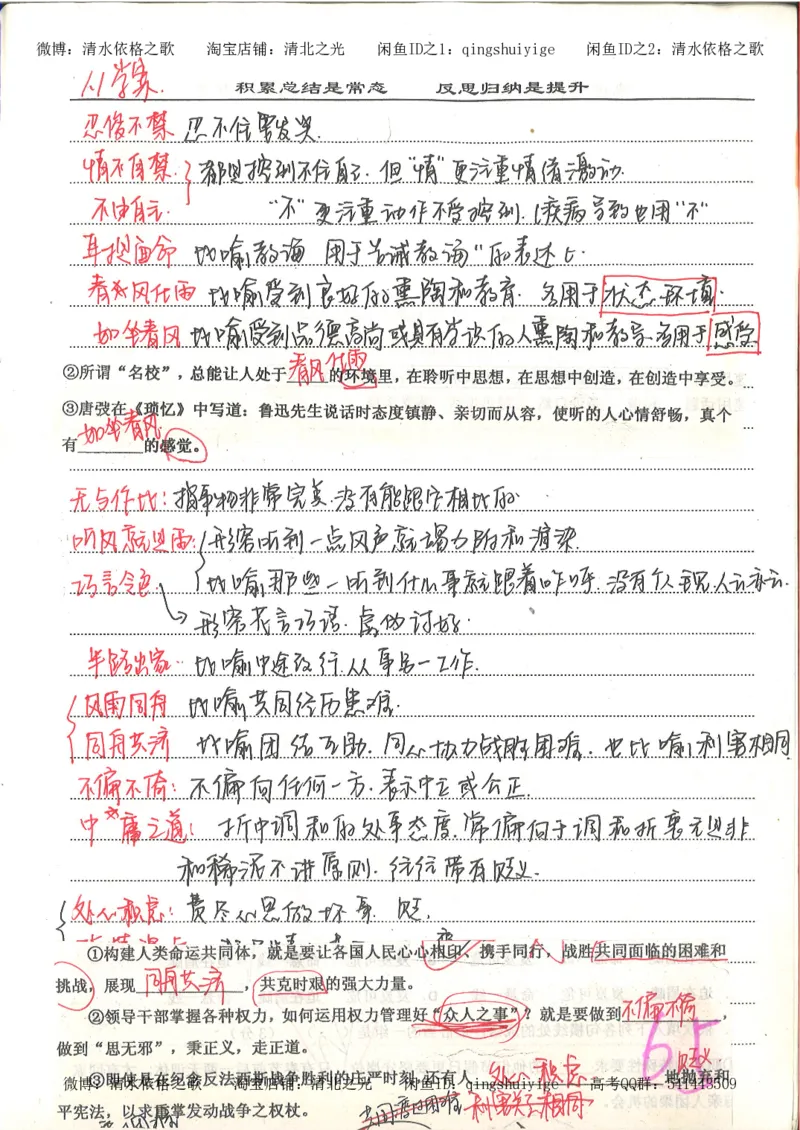 微博：清水依格之歌 淘宝店铺：清北之光 闲鱼ID之1：qingshuiyige 闲鱼ID之2：清水依格之歌
从学案
积累总结是常态 反思归纳是提升
忍俊不禁 忍不住要发笑.
情不自禁 都是控制不住自己. 但"情"更注重情绪激动.
不由自主 "不"更注重动作不受控制. (疾病导致也用"不"
耳提面命 比喻教诲 用于告诫教诲"的表述上.
春风化雨 比喻受到良好的熏陶和教育. 多用于状态环境
如坐春风 比喻受到品德高尚或具有学识的人熏陶和教导. 多用于感受
春风化雨
②所谓"名校"，总能让人处于____的环境里，在聆听中思想，在思想中创造，在创造中享受。
③唐弢在《琐忆》中写道：鲁迅先生说话时态度镇静、亲切而从容，使听的人心情舒畅，真个
如坐春风
有________的感觉。
无与伦比：指事物非常完美.没有能跟它相比的
听风就是雨 形容听到一点风声就竭力附和渲染.
巧言令色 比喻那些一听到什么事就跟着咋呼. 没有个主见. 人云亦云.
形容花言巧语. 虚伪讨好.
半路出家 比喻中途改行.从事另一工作.
风雨同舟 比喻共同经历患难.
同舟共济 比喻团结互助. 同心协力战胜困难. 也比喻利害相同
不偏不倚：不偏向任何一方.表示中立或公正.
中庸之道：折中调和的处事态度.常偏向于调和折衷无是非
和稀泥不讲原则. 往往带有贬义.
处心积虑：费尽心思做坏事. 贬.
①构建人类命运共同体，就是要让各国人民心心相印、携手同行，战胜共同面临的困难和
挑战，展现 同舟共济 ，共克时艰的强大力量。
②领导干部掌握各种权力，如何运用权力管理好"众人之事"？就是要做到 不偏不倚 ，
做到"思无邪"，秉正义，走正道。
65
贬义
③即使是在纪念反法西斯战争胜利的庄严时刻，还有人 处心积虑 地抛充和
微博：清水依格之歌 淘宝店铺：清北之光 闲鱼ID：qingshuiyige 高考QQ群：541413509
平宪法，以求重掌发动战争之权杖。 利害关系相同